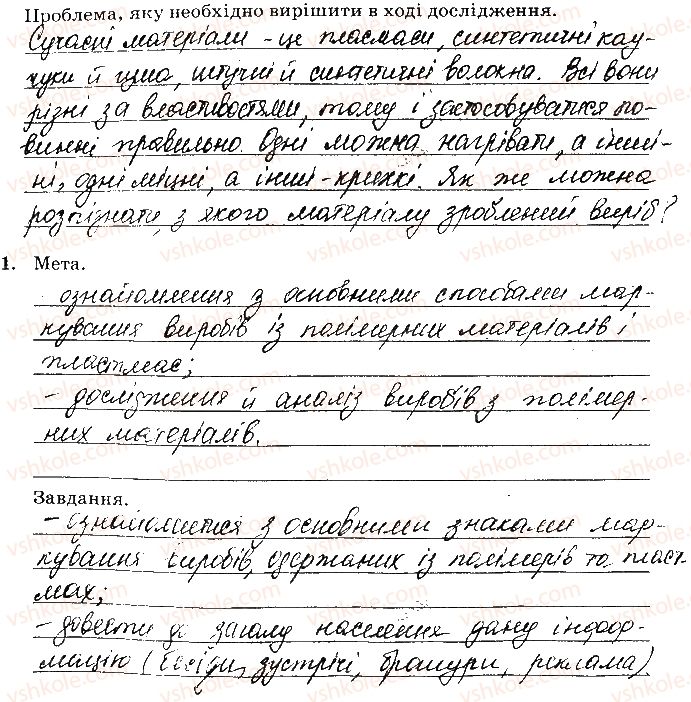 Проблема, яку необхідно вирішити в ході дослідження.
Сучасні матеріали - це пласмаси, синтетичні кау-
чуки й гума, штучні й синтетичні волокна. Всі вони
різні за властивостями, тому і застосовуватися по-
винні правильно. Одні можна нагрівати, а інши-
ні, одні міцні, а інші - крихкі. Як же можна
розпізнати, з якого матеріалу зроблений виріб?
1. Мета.
- ознайомлення з основними способами мар-
кування виробів із полімерних матеріалів і
пластмас;
- дослідження й аналіз виробів з полімер-
них матеріалів.
Завдання.
- ознайомитися з основними знаками мар-
кування виробів, одержаних із полімерів та пласт-
мах;
- довести до загалу населення дану інфор-
мацію (бесіди, зустрічі, брашури, реклама)
vshkole.com